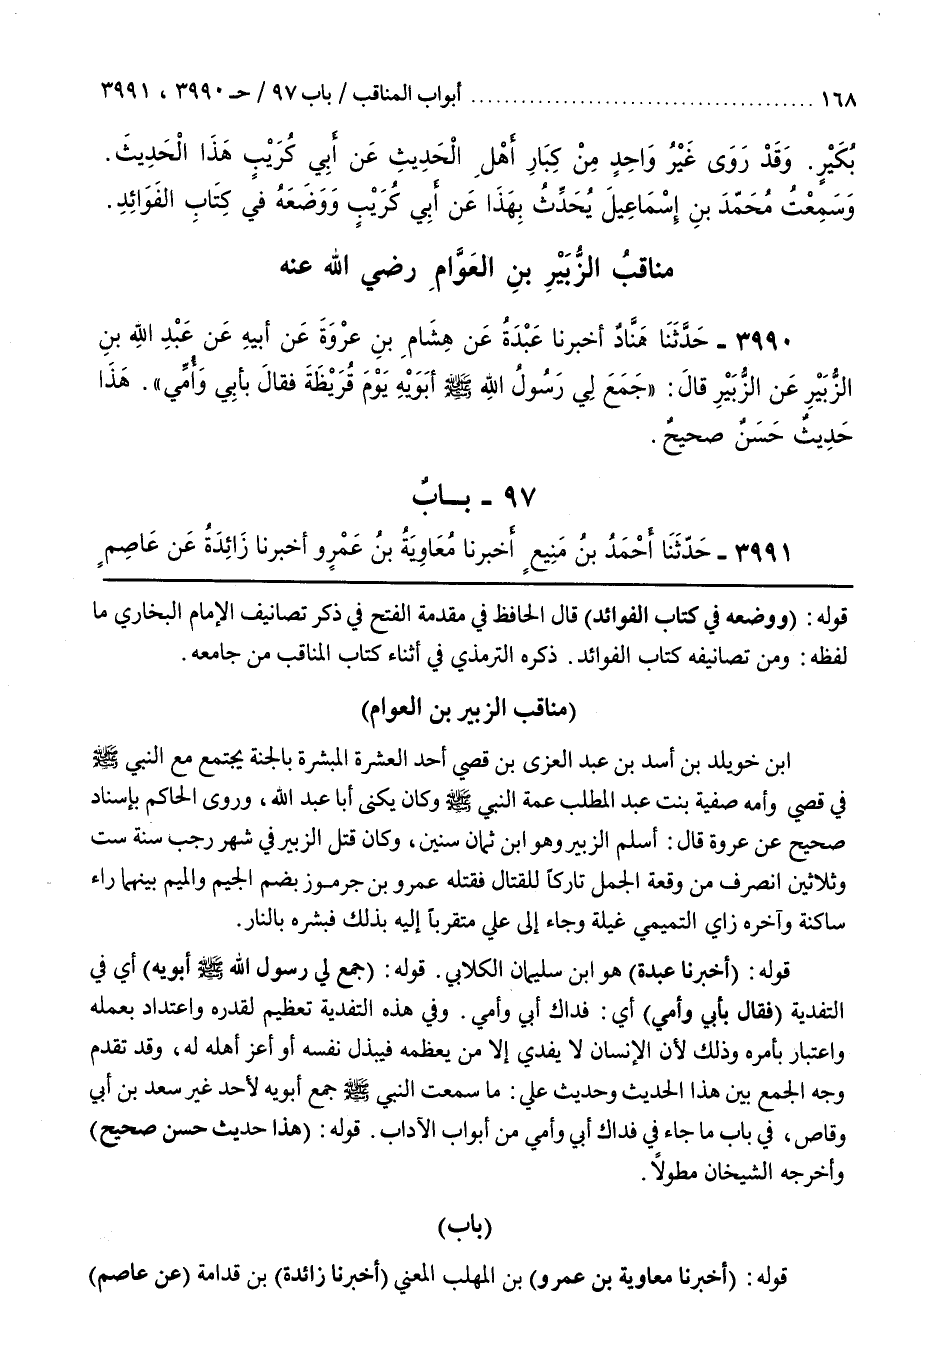 ١٦٨ ........................................ أبواب المناقب / باب ٩٧ / حـ ٣٩٩٠ ، ٣٩٩١
بُكَيْرٍ. وَقَدْ رَوَى غَيْرُ وَاحِدٍ مِنْ كِبَارِ أَهْلِ الْحَدِيثِ عَن أَبِي كُرَيْبٍ هَذَا الْحَدِيثَ.
وَسَمِعْتُ مُحَمّدَ بنِ إِسْمَاعِيلَ يُحَدِّثُ بِهَذَا عَن أَبِي كُرَيْبٍ وَوَضَعَهُ في كِتَابِ الفَوَائِدِ.
مناقبُ الزُّبَيْرِ بنِ العَوَّامِ رضي الله عنه
٣٩٩٠ ـ حَدَّثَنَا هَنَّادٌ أخبرنا عَبْدَةُ عَن هِشَامِ بنِ عرْوَةَ عَن أبيهِ عَن عَبْدِ الله بنِ
الزُّبَيْرِ عَن الزُّبَيْرِ قالَ: «جَمَعَ لِي رَسُولُ الله ﷺ أبَوَيْهِ يَوْمَ قُرَيْظَةَ فقالَ بأبي وَأُمِّي». هَذَا
حَدِيثٌ حَسَنٌ صحيحٌ.
٩٧ ـ بــابٌ
٣٩٩١ ـ حَدّثَنَا أَحْمَدُ بنُ مَنِيعٍ أَخبرنا مُعَاوِيَةُ بنُ عَمْرٍو أخبرنا زَائِدَةُ عَن عَاصِمٍ
قوله: (ووضعه في كتاب الفوائد) قال الحافظ في مقدمة الفتح في ذكر تصانيف الإمام البخاري ما
لفظه: ومن تصانيفه كتاب الفوائد. ذكره الترمذي في أثناء كتاب المناقب من جامعه.
(مناقب الزبير بن العوام)
ابن خويلد بن أسد بن عبد العزى بن قصي أحد العشرة المبشرة بالجنة يجتمع مع النبي ﷺ
في قصي وأمه صفية بنت عبد المطلب عمة النبي ﷺ وكان يكنى أبا عبد الله، وروى الحاكم بإسناد
صحيح عن عروة قال: أسلم الزبير وهو ابن ثمان سنين، وكان قتل الزبير في شهر رجب سنة ست
وثلاثين انصرف من وقعة الجمل تاركاً للقتال فقتله عمرو بن جرمـوز بضم الجيم والميم بينهما راء
ساكنة وآخره زاي التميمي غيلة وجاء إلى علي متقرباً إليه بذلك فبشره بالنار.
قوله: (أخبرنا عبدة) هو ابن سليمان الكلابي. قوله: (جمع لي رسول الله ﷺ أبويه) أي في
التفدية (فقال بأبي وأمي) أي: فداك أبي وأمي. وفي هذه التفدية تعظيم لقدره واعتداد بعمله
واعتبار بأمره وذلك لأن الإنسان لا يفدي إلا من يعظمه فيبذل نفسه أو أعز أهله له، وقد تقدم
وجه الجمع بين هذا الحديث وحديث علي: ما سمعت النبي ﷺ جمع أبويه لأحد غير سعد بن أبي
وقاص، في باب ما جاء في فداك أبي وأمي من أبواب الآداب. قوله: (هذا حديث حسن صحيح)
وأخرجه الشيخان مطولاً.
(باب)
قوله: (أخبرنا معاوية بن عمرو) بن المهلب المعني (أخبرنا زائدة) بن قدامة (عن عاصم)